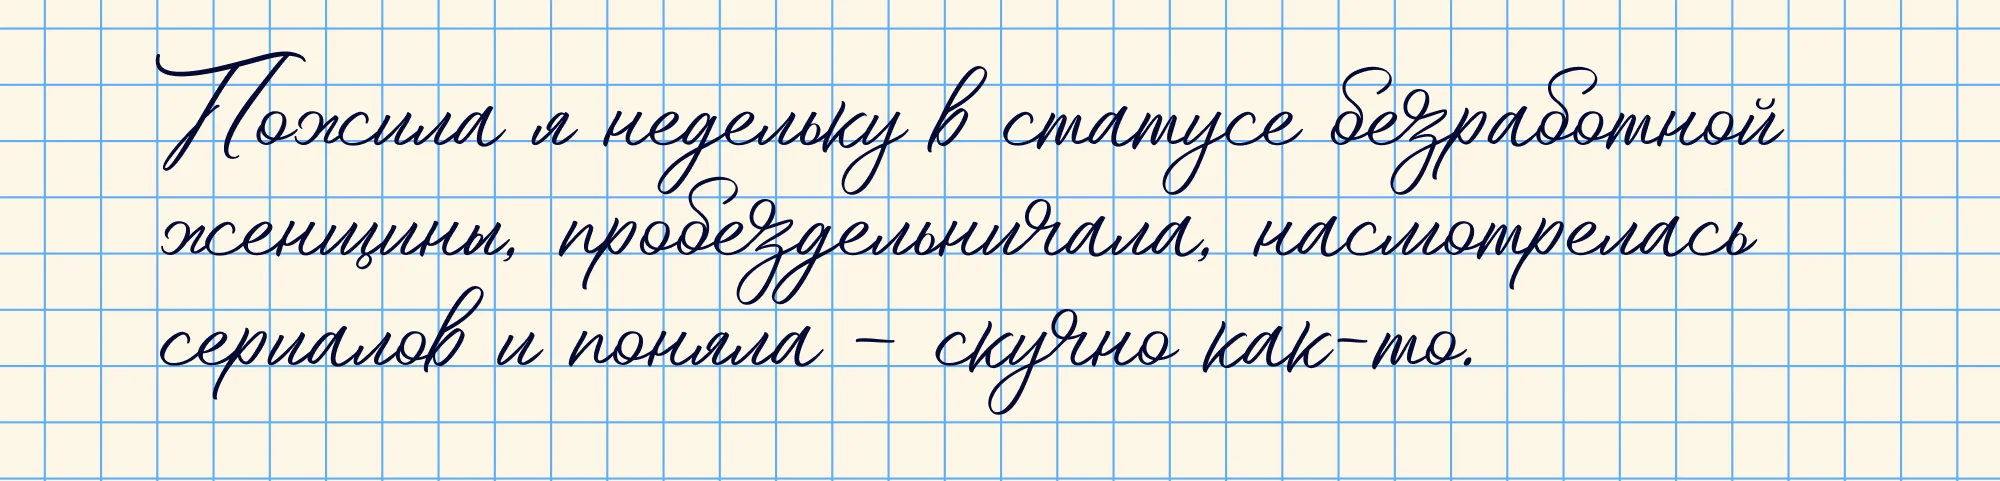 Пожила я недельку в статусе безработной
женщины, пробездельничала, насмотрелась
сериалов и поняла – скучно как-то.